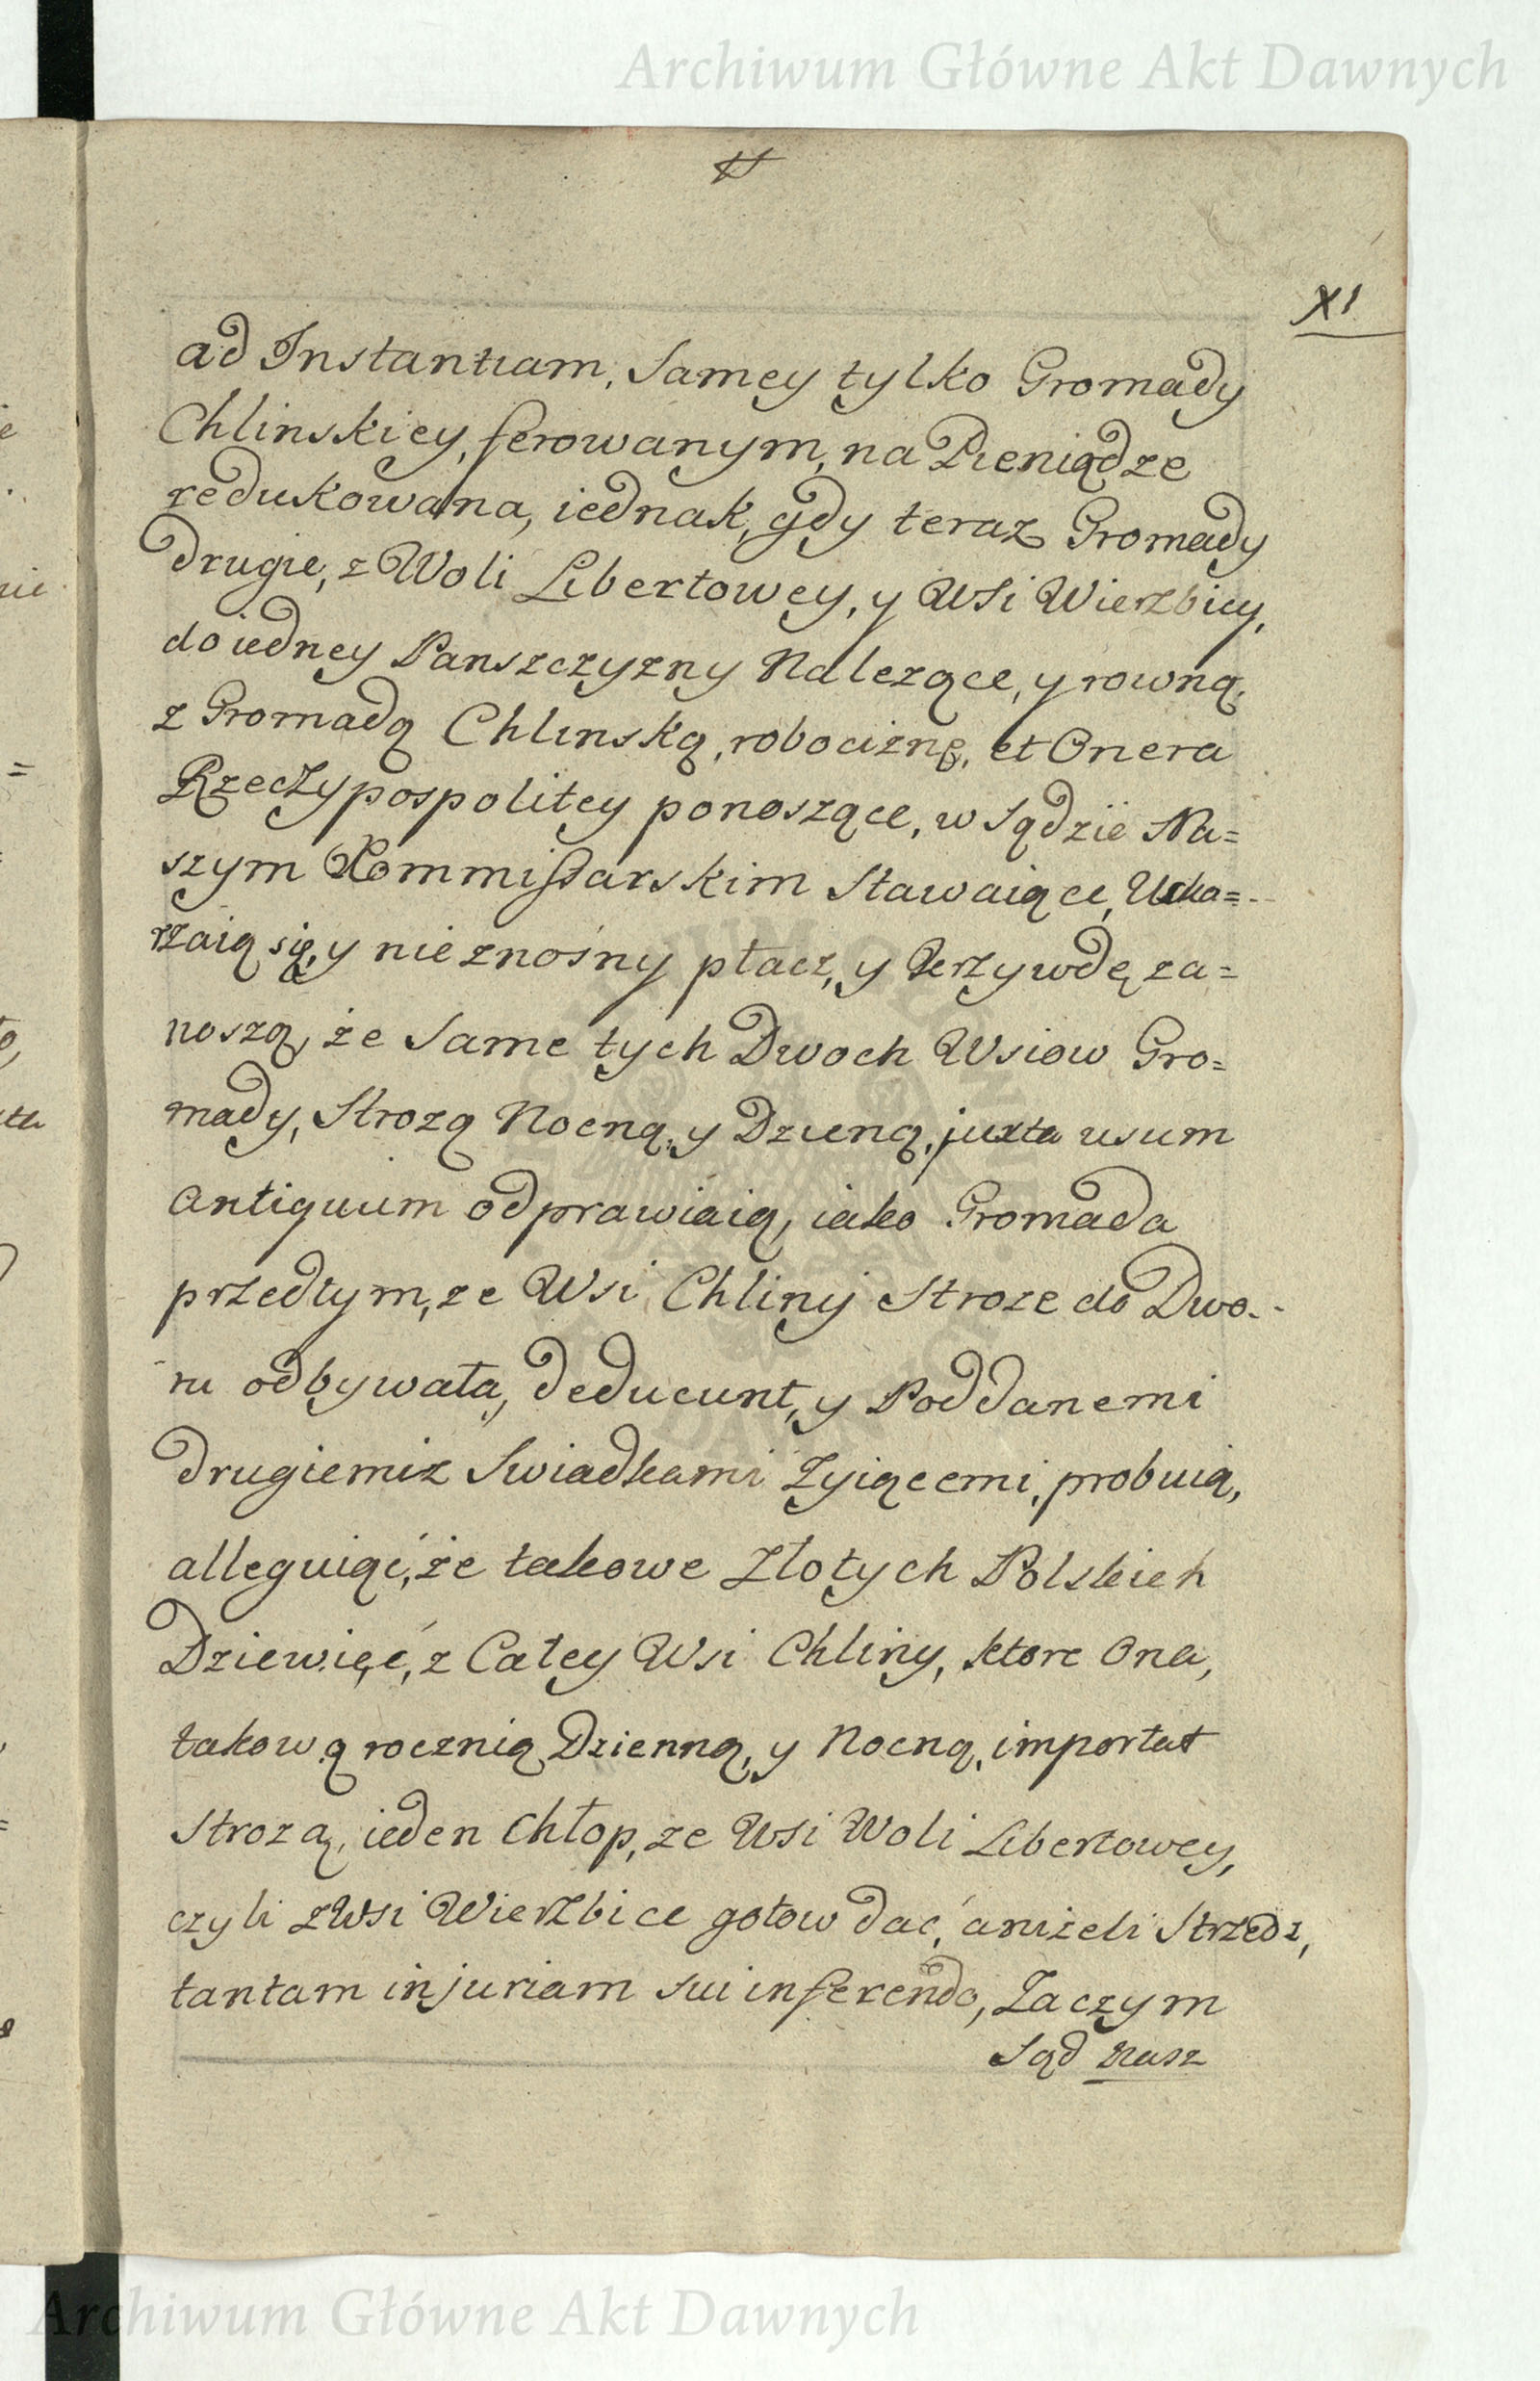 Archiwum Główne Akt Dawnych
XI
ad Instantiam, Samey tylko Gromady
Chlinskiey, ferowanym, na Pieniądze
redukowana, iednak, gdy teraz Gromady
drugie, z Woli Libertowey, y Wsi Wierzbicy,
do iedney Panszczyzny Nalezące, y rowną,
z Gromadą Chlinską, robociznę, et Onera
Rzeczypospolitey ponoszące, w Sądzie Na=
szym Kommissarskim Stawaiące, Uska=
rzaią się, y nieznośny płacz, y Krzywdę za=
noszą, że Same tych Dwoch Wsiow Gro=
mady, Strozą Nocną, y Dzieną, juxta usum
antiquum odprawiaią, iako Gromada
przedtym, ze Wsi Chliny Stroze do Dwo-
ru odbywała, deducunt, y Poddanemi
drugiemiz Swiadkami Zyiącemi, probuią,
alleguiąć, że takowe Złotych Polskich
Dziewięć, z Całey Wsi Chliny, ktore Ona,
takową rocznią Dzienną, y Nocną, importat
Strozą, ieden Chłop, ze Wsi Woli Libertowey,
czyli z Wsi Wierzbice gotow dać, aniżeli Strzedz,
tantam injuriam sui inferendo, Zaczym
Sąd Nasz
Archiwum Główne Akt Dawnych